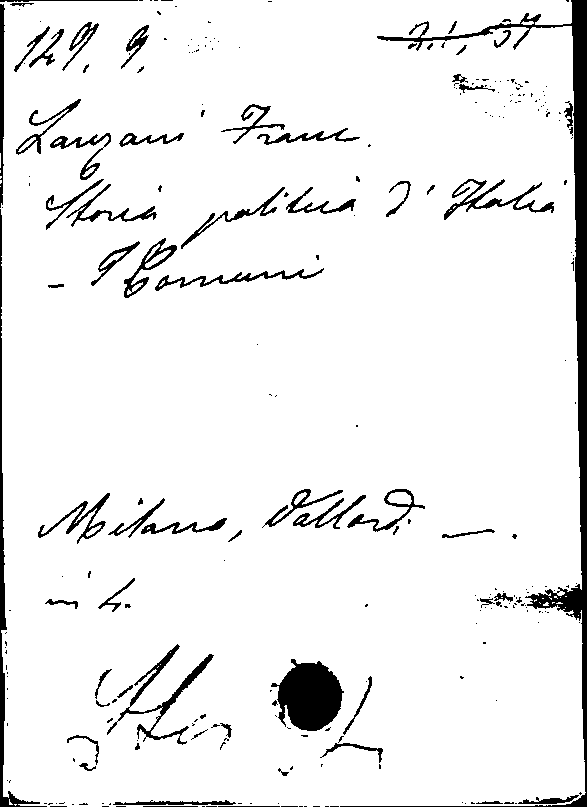 129. 9.
Lanzani Franc.
Storia politica d' Italia
- I Comuni
Milano, Vallardi —.
in 4.